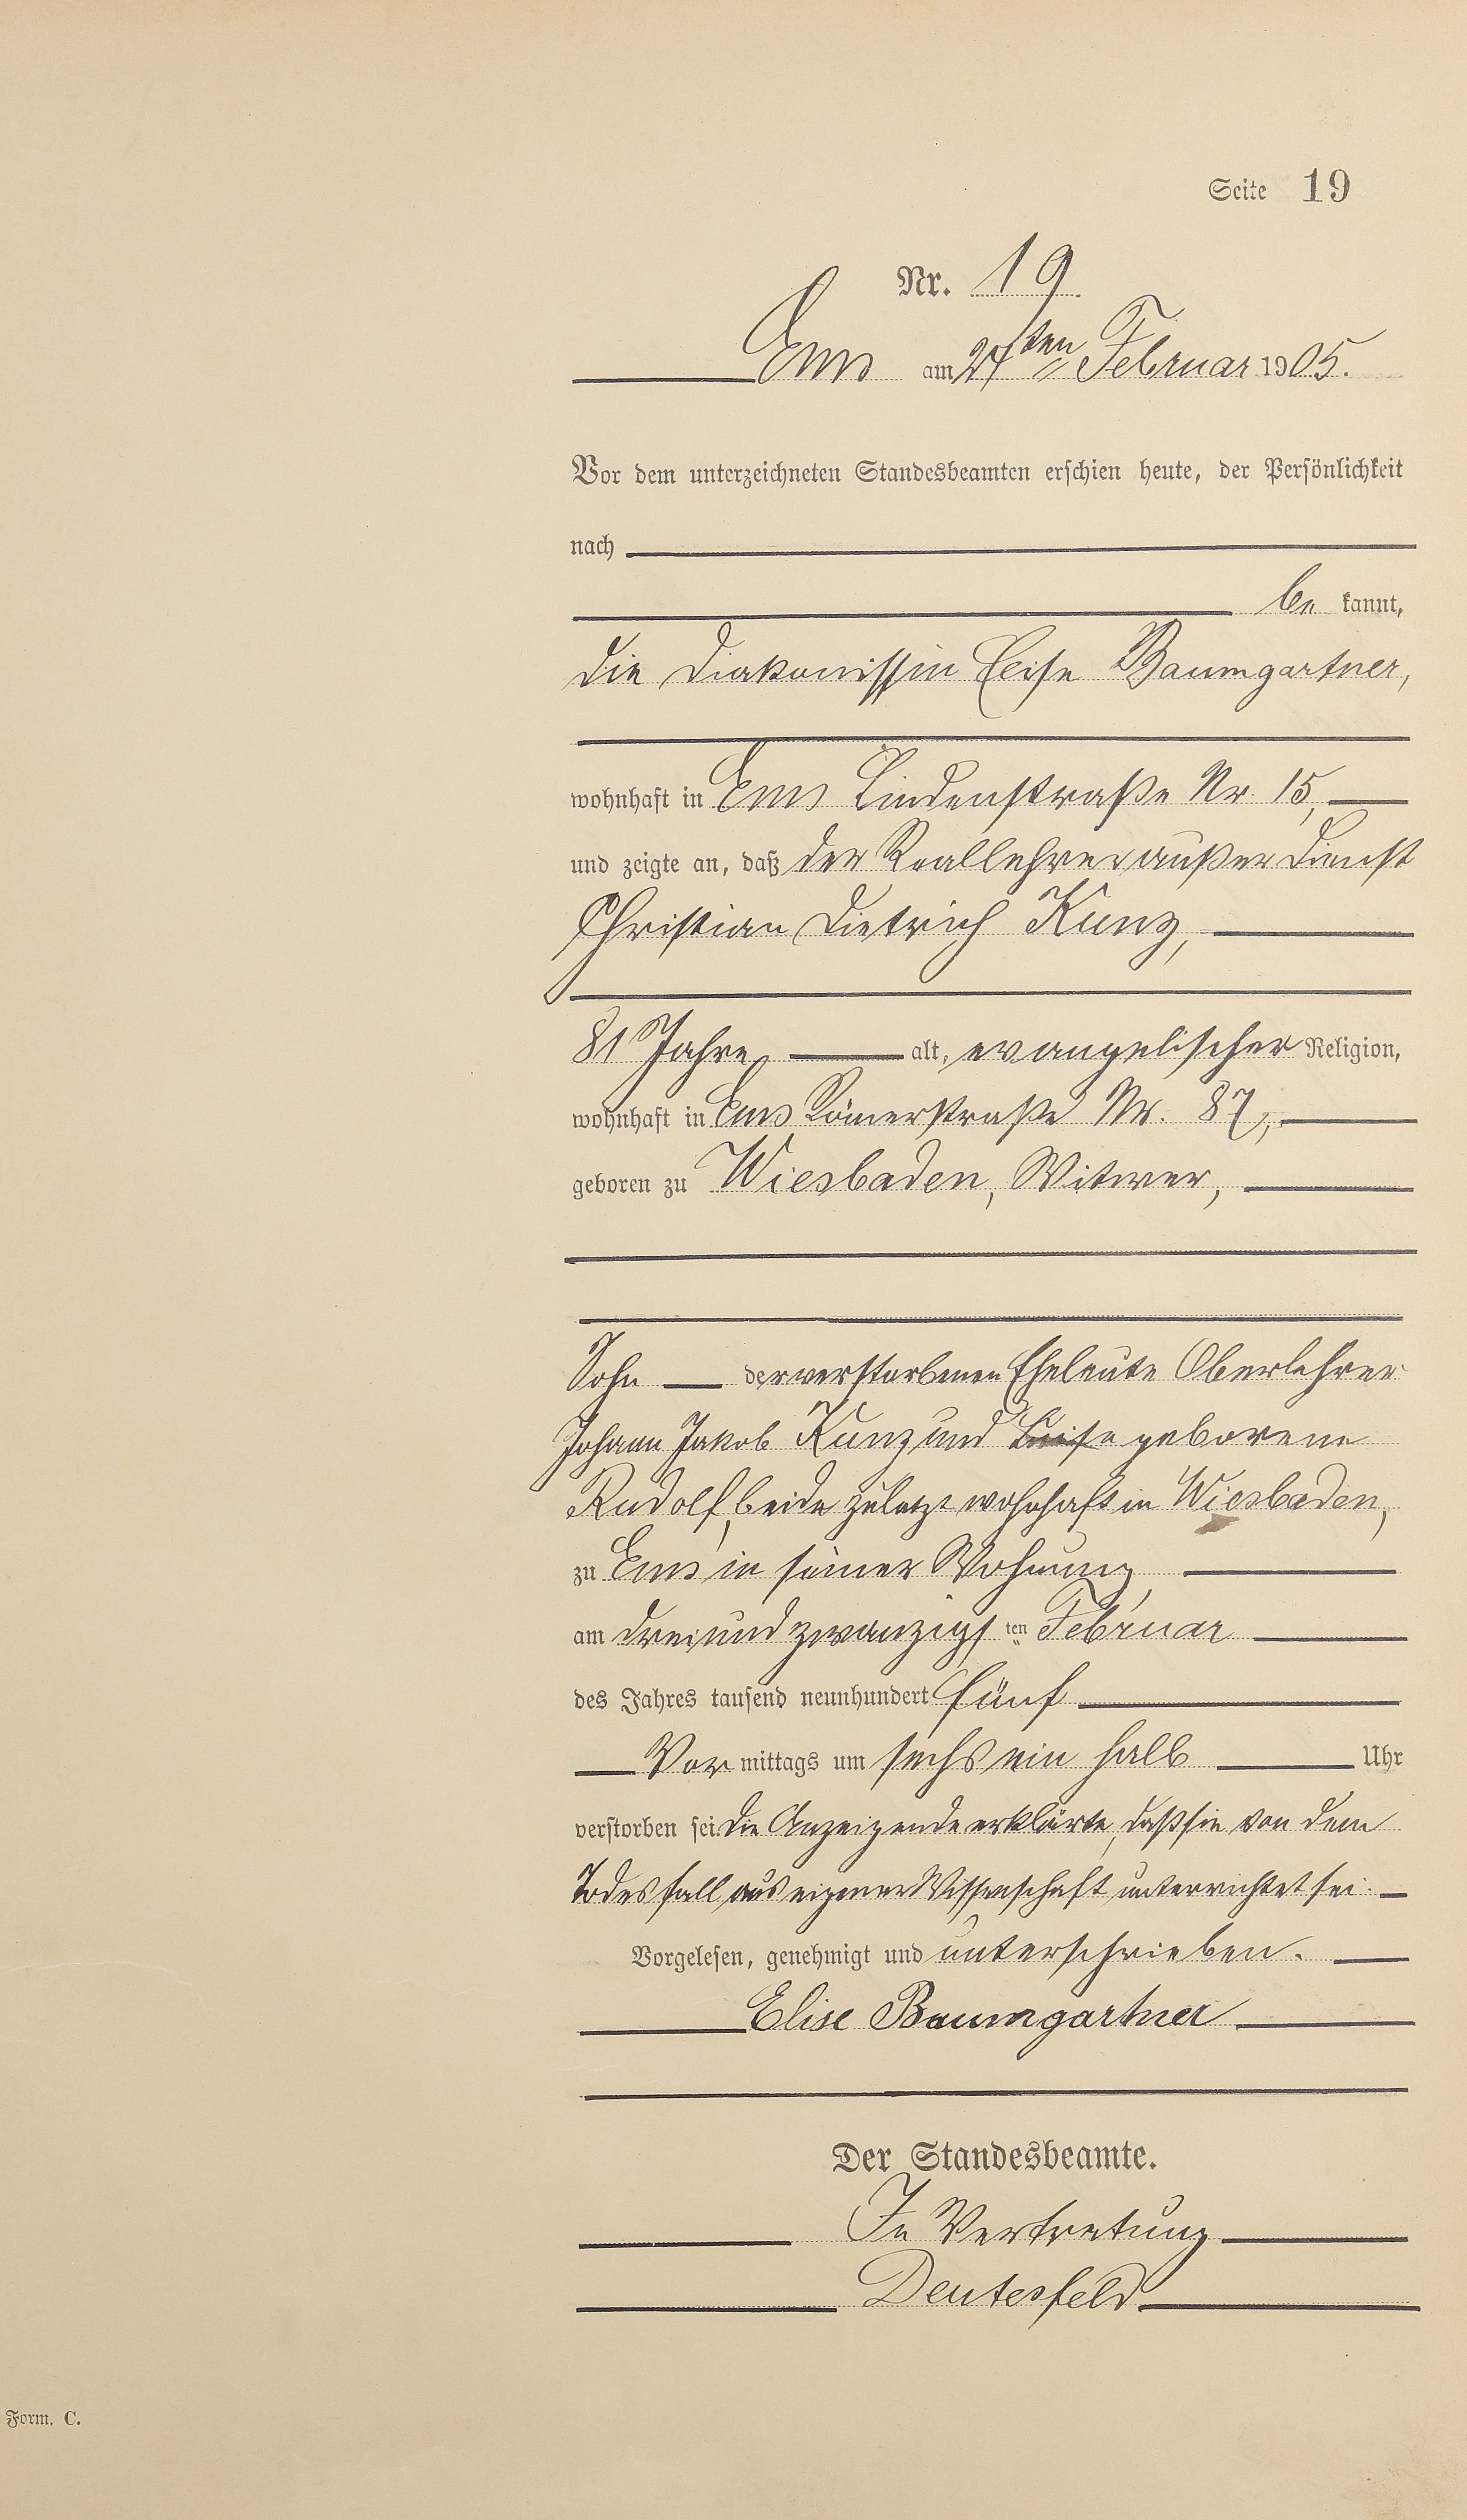 Seite 19
Nr. 19
Ems am 24ten Februar 1905.
Vor dem unterzeichneten Standesbeamten erschien heute, der Persönlichkeit
nach
be kannt,
die Diakonissin Elise Baumgartner,
wohnhaft in Ems Lindenstraße Nr 15,
und zeigte an, daß der Reallehrer außer Dienst
Christian Dietrich Kunz,
81 Jahre alt, evangelischer Religion,
wohnhaft in Ems Römerstraße Nr. 87,
geboren zu Wiesbaden, Witwer,
Sohn der verstorbenen Eheleute Oberlehrer
Johann Jakob Kunz und Luise geborene
Rudolf, beide zuletzt wohnhaft in Wiesbaden,
zu Ems in seiner Wohnung,
am dreiundzwanzigsten Februar
des Jahres tausend neunhundert fünf
Vor mittags um sechs ein halb Uhr
verstorben sei. Die Anzeigende erklärte, daß sie von dem
Todesfall aus eigener Wissenschaft unterrichtet sei.
Vorgelesen, genehmigt und unterschrieben.
Elise Baumgartner
Der Standesbeamte.
In Vertretung
Deutesfeld
Form. C.